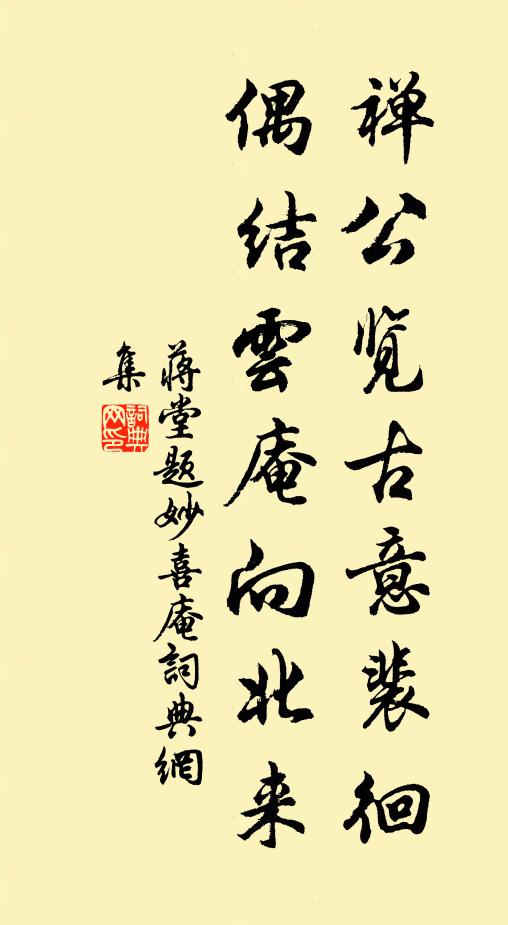 禅公览古意裴徊
偶结雲庵向北来
蒋堂题妙喜庵詞典網
集
詞典
网印